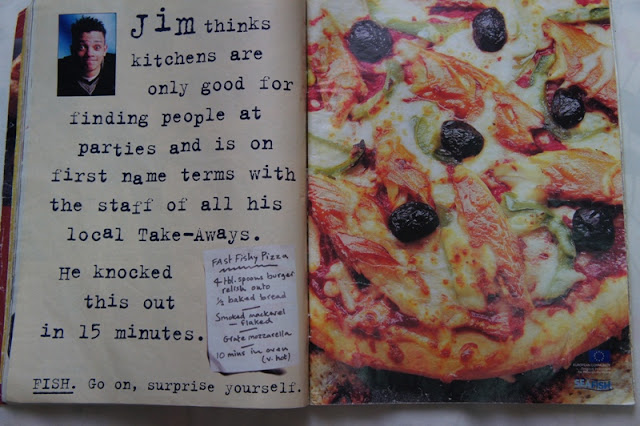 Jim thinks
kitchens are
only good for
finding people at
parties and is on
first name terms with
the staff of all his
local Take-Aways.
He knocked
this out
in 15 minutes.
FAST Fishy Pizza
4 tbl. spoons burger
relish onto
1/2 baked bread
Smoked mackerel
— flaked
Grate mozzarella
10 mins in oven
(v. hot)
FISH. Go on, surprise yourself.
SEAFISH